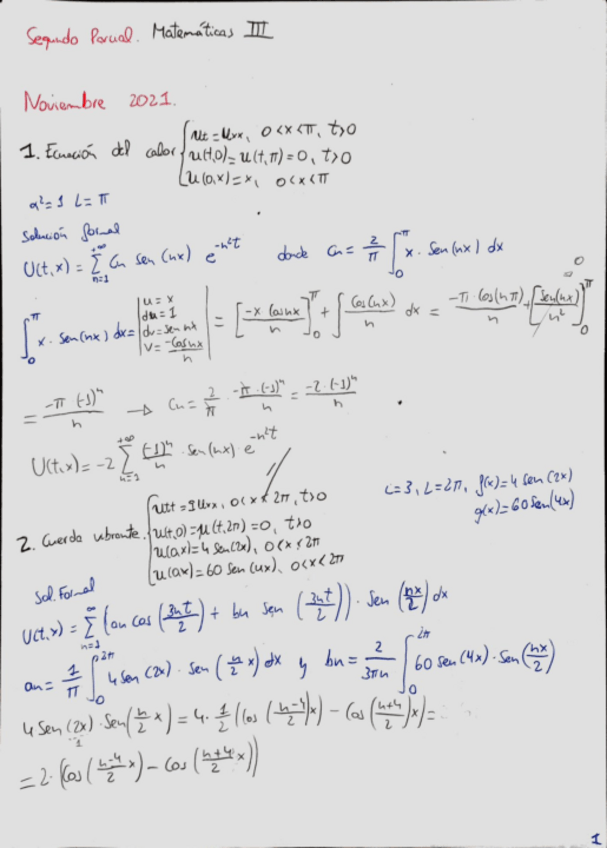 Segundo Parcial. Matemáticas III
Noviembre 2021.
1. Ecuación del calor { ut = uxx, 0<x<π, t>0
u(t,0) = u(t,π) = 0, t>0
u(0,x) = x, 0<x<π
α² = 1 L = π
Solución formal
U(t,x) = ∑_{n=1}^{+∞} Cn sen(nx) e^{-n²t} donde Cn = 2/π ∫_0^π x · sen(nx) dx
∫_0^π x · sen(nx) dx = | u = x
du = 1
dv = sen nx
v = -cos nx / n | = [-x cos nx / n]_0^π + ∫ cos(nx)/n dx = -π · cos(nπ) / n + [sen(nx)/n²]_0^π = 0
= -π (-1)^n / n → Cn = 2/π · -π · (-1)^n / n = -2 · (-1)^n / n
U(t,x) = -2 ∑_{n=1}^{+∞} (-1)^n / n · sen(nx) e^{-n²t}
2. Cuerda vibrante. { utt = 9uxx, 0<x<2π, t>0
u(t,0) = u(t,2π) = 0, t>0
u(0,x) = 4 sen(2x), 0<x<2π
u(0,x) = 60 sen(4x), 0<x<2π
c=3, L=2π, f(x) = 4 sen(2x)
g(x) = 60 sen(4x)
Sol. Formal
U(t,x) = ∑_{n=1}^{∞} (an cos(3nt/2) + bn sen(3nt/2)) · sen(nx/2) dx
an = 1/π ∫_0^{2π} 4 sen(2x) · sen(n/2 x) dx y bn = 2/3πn ∫_0^{2π} 60 sen(4x) · sen(nx/2)
4 sen(2x) · sen(n/2 x) = 4 · 1/2 (cos((n-4)/2)x) - cos((n+4)/2)x) =
= 2 · (cos((n-4)/2 x) - cos((n+4)/2 x))
1